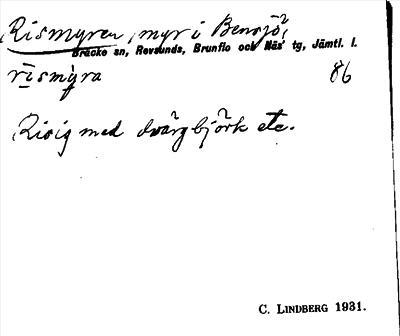 Rismyren, myr i Bensjö,
Bräcke sn, Revsunds, Brunflo och Näs' tg, Jämtl. l.
rismy̆ra 86
Risig med dvärgbjörk etc.
C. LINDBERG 1931.